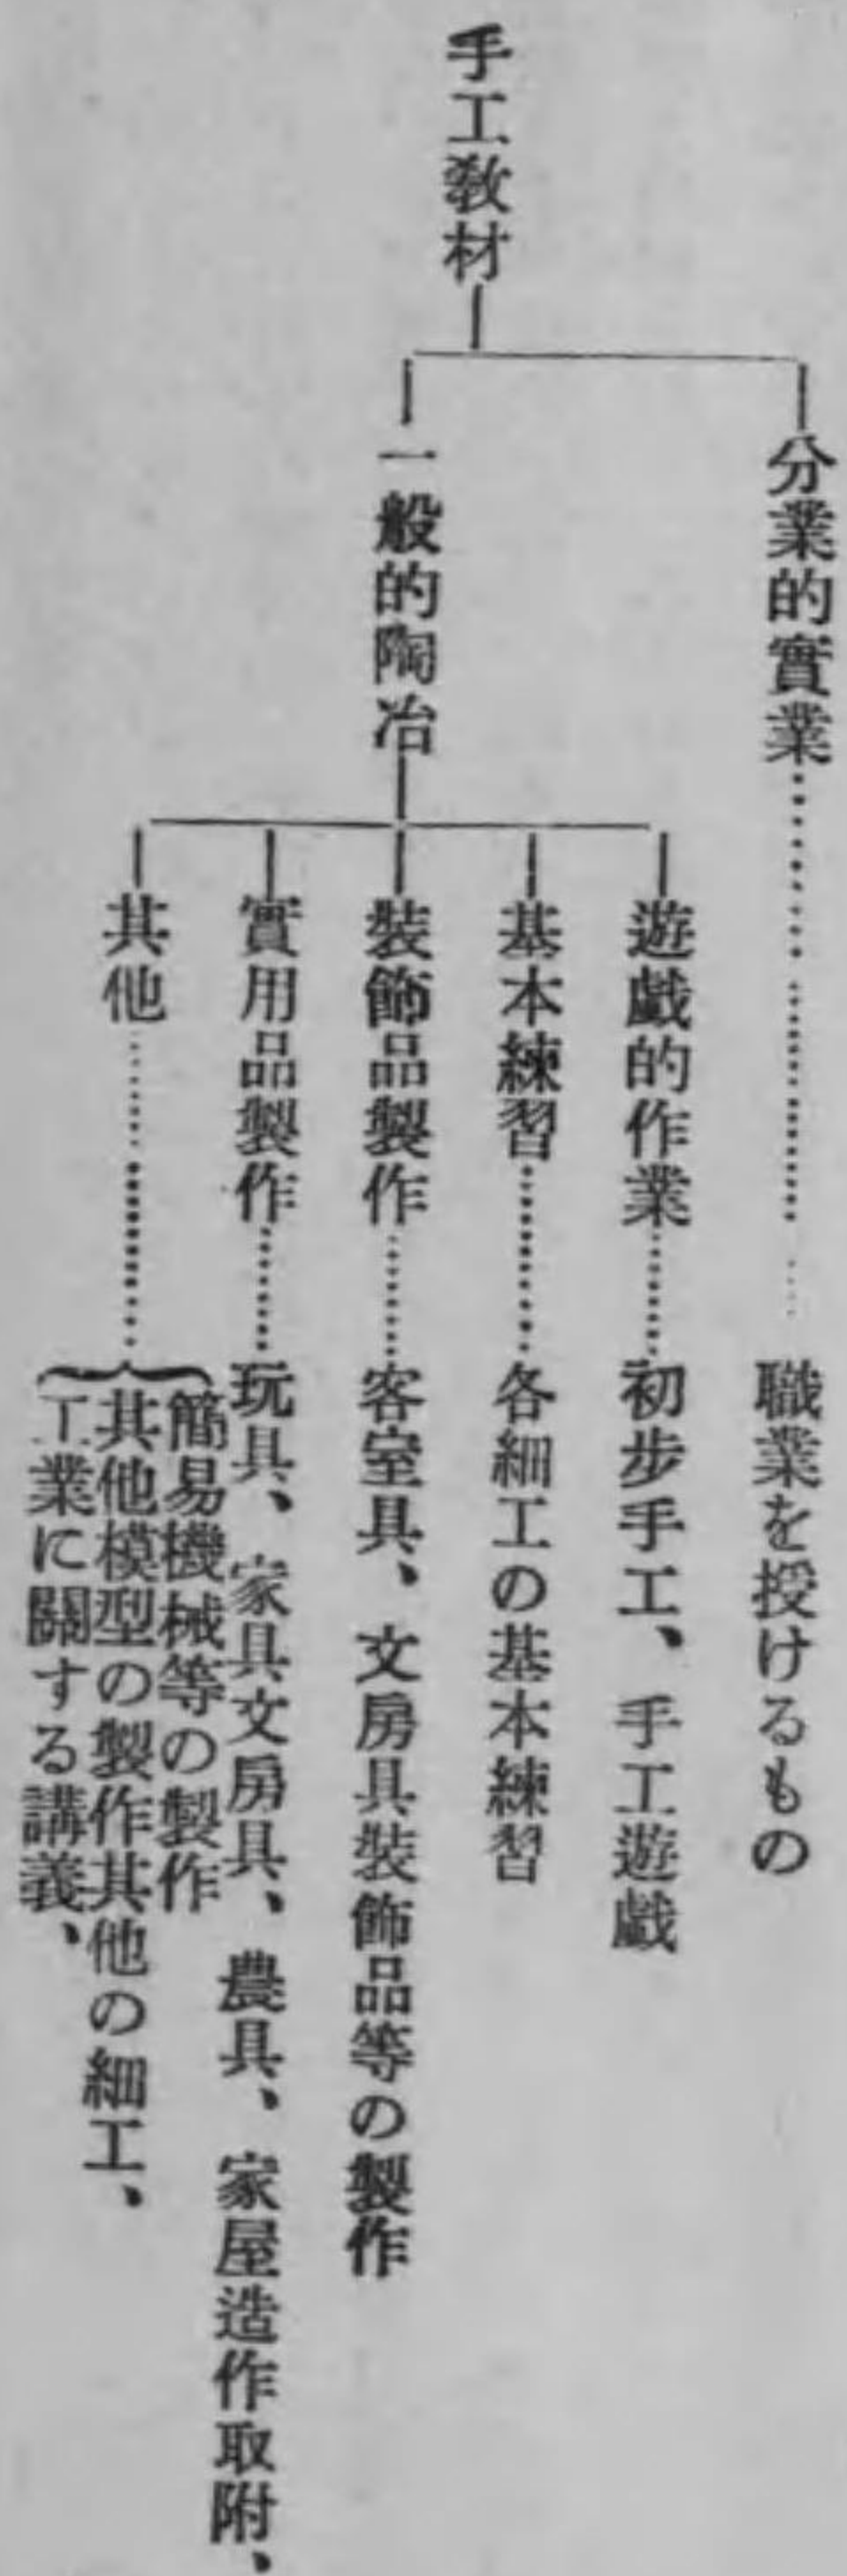 手工教材
分業的實業…………職業を授けるもの
一般的陶冶
遊戲的作業………初步手工、手工遊戲
基本練習………各細工の基本練習
裝飾品製作………客室具、文房具裝飾品等の製作
實用品製作………玩具、家具文房具、農具、家屋造作取附、
其他…………
簡易機械等の製作
其他模型の製作其他の細工、
工業に關する講義、